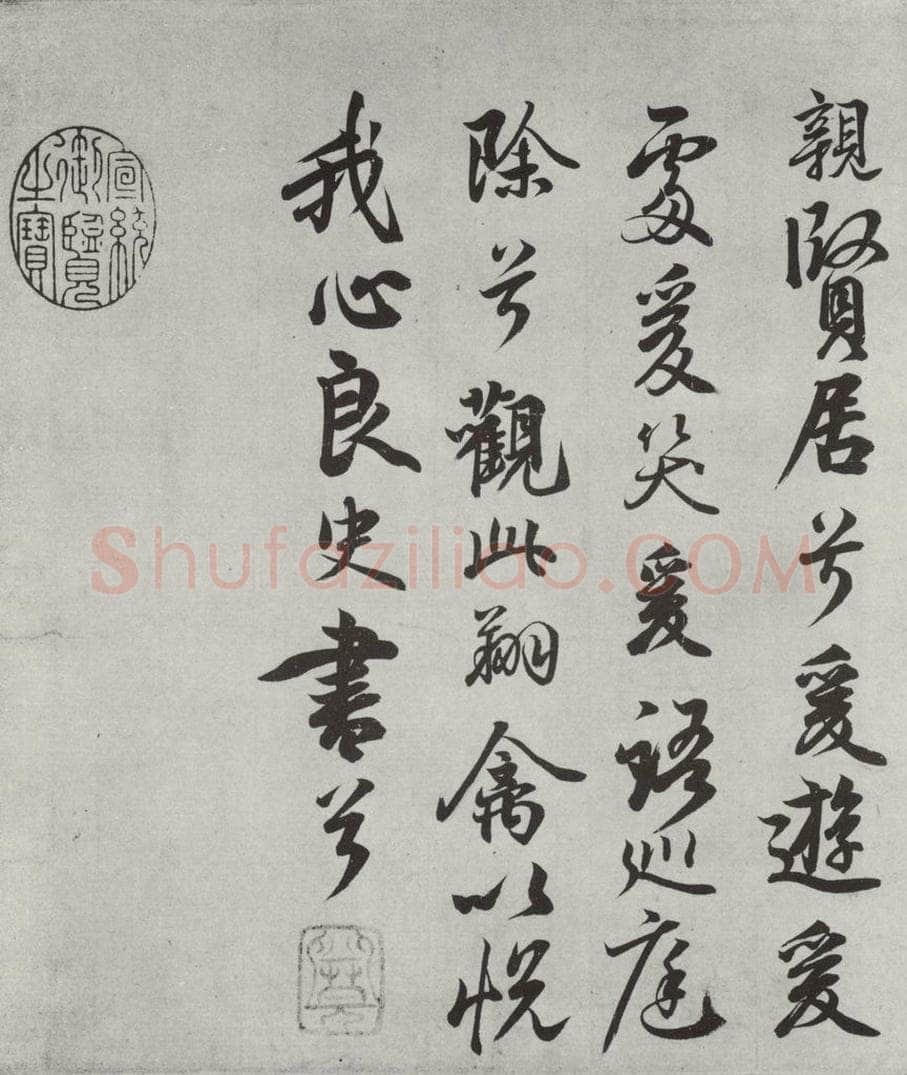 親賢居兮爰遊爰
處爰笑爰語巡庭
除兮觀此翔禽以悅
我心良史書兮
宣統御覽之寶
Shufaziliao.COM